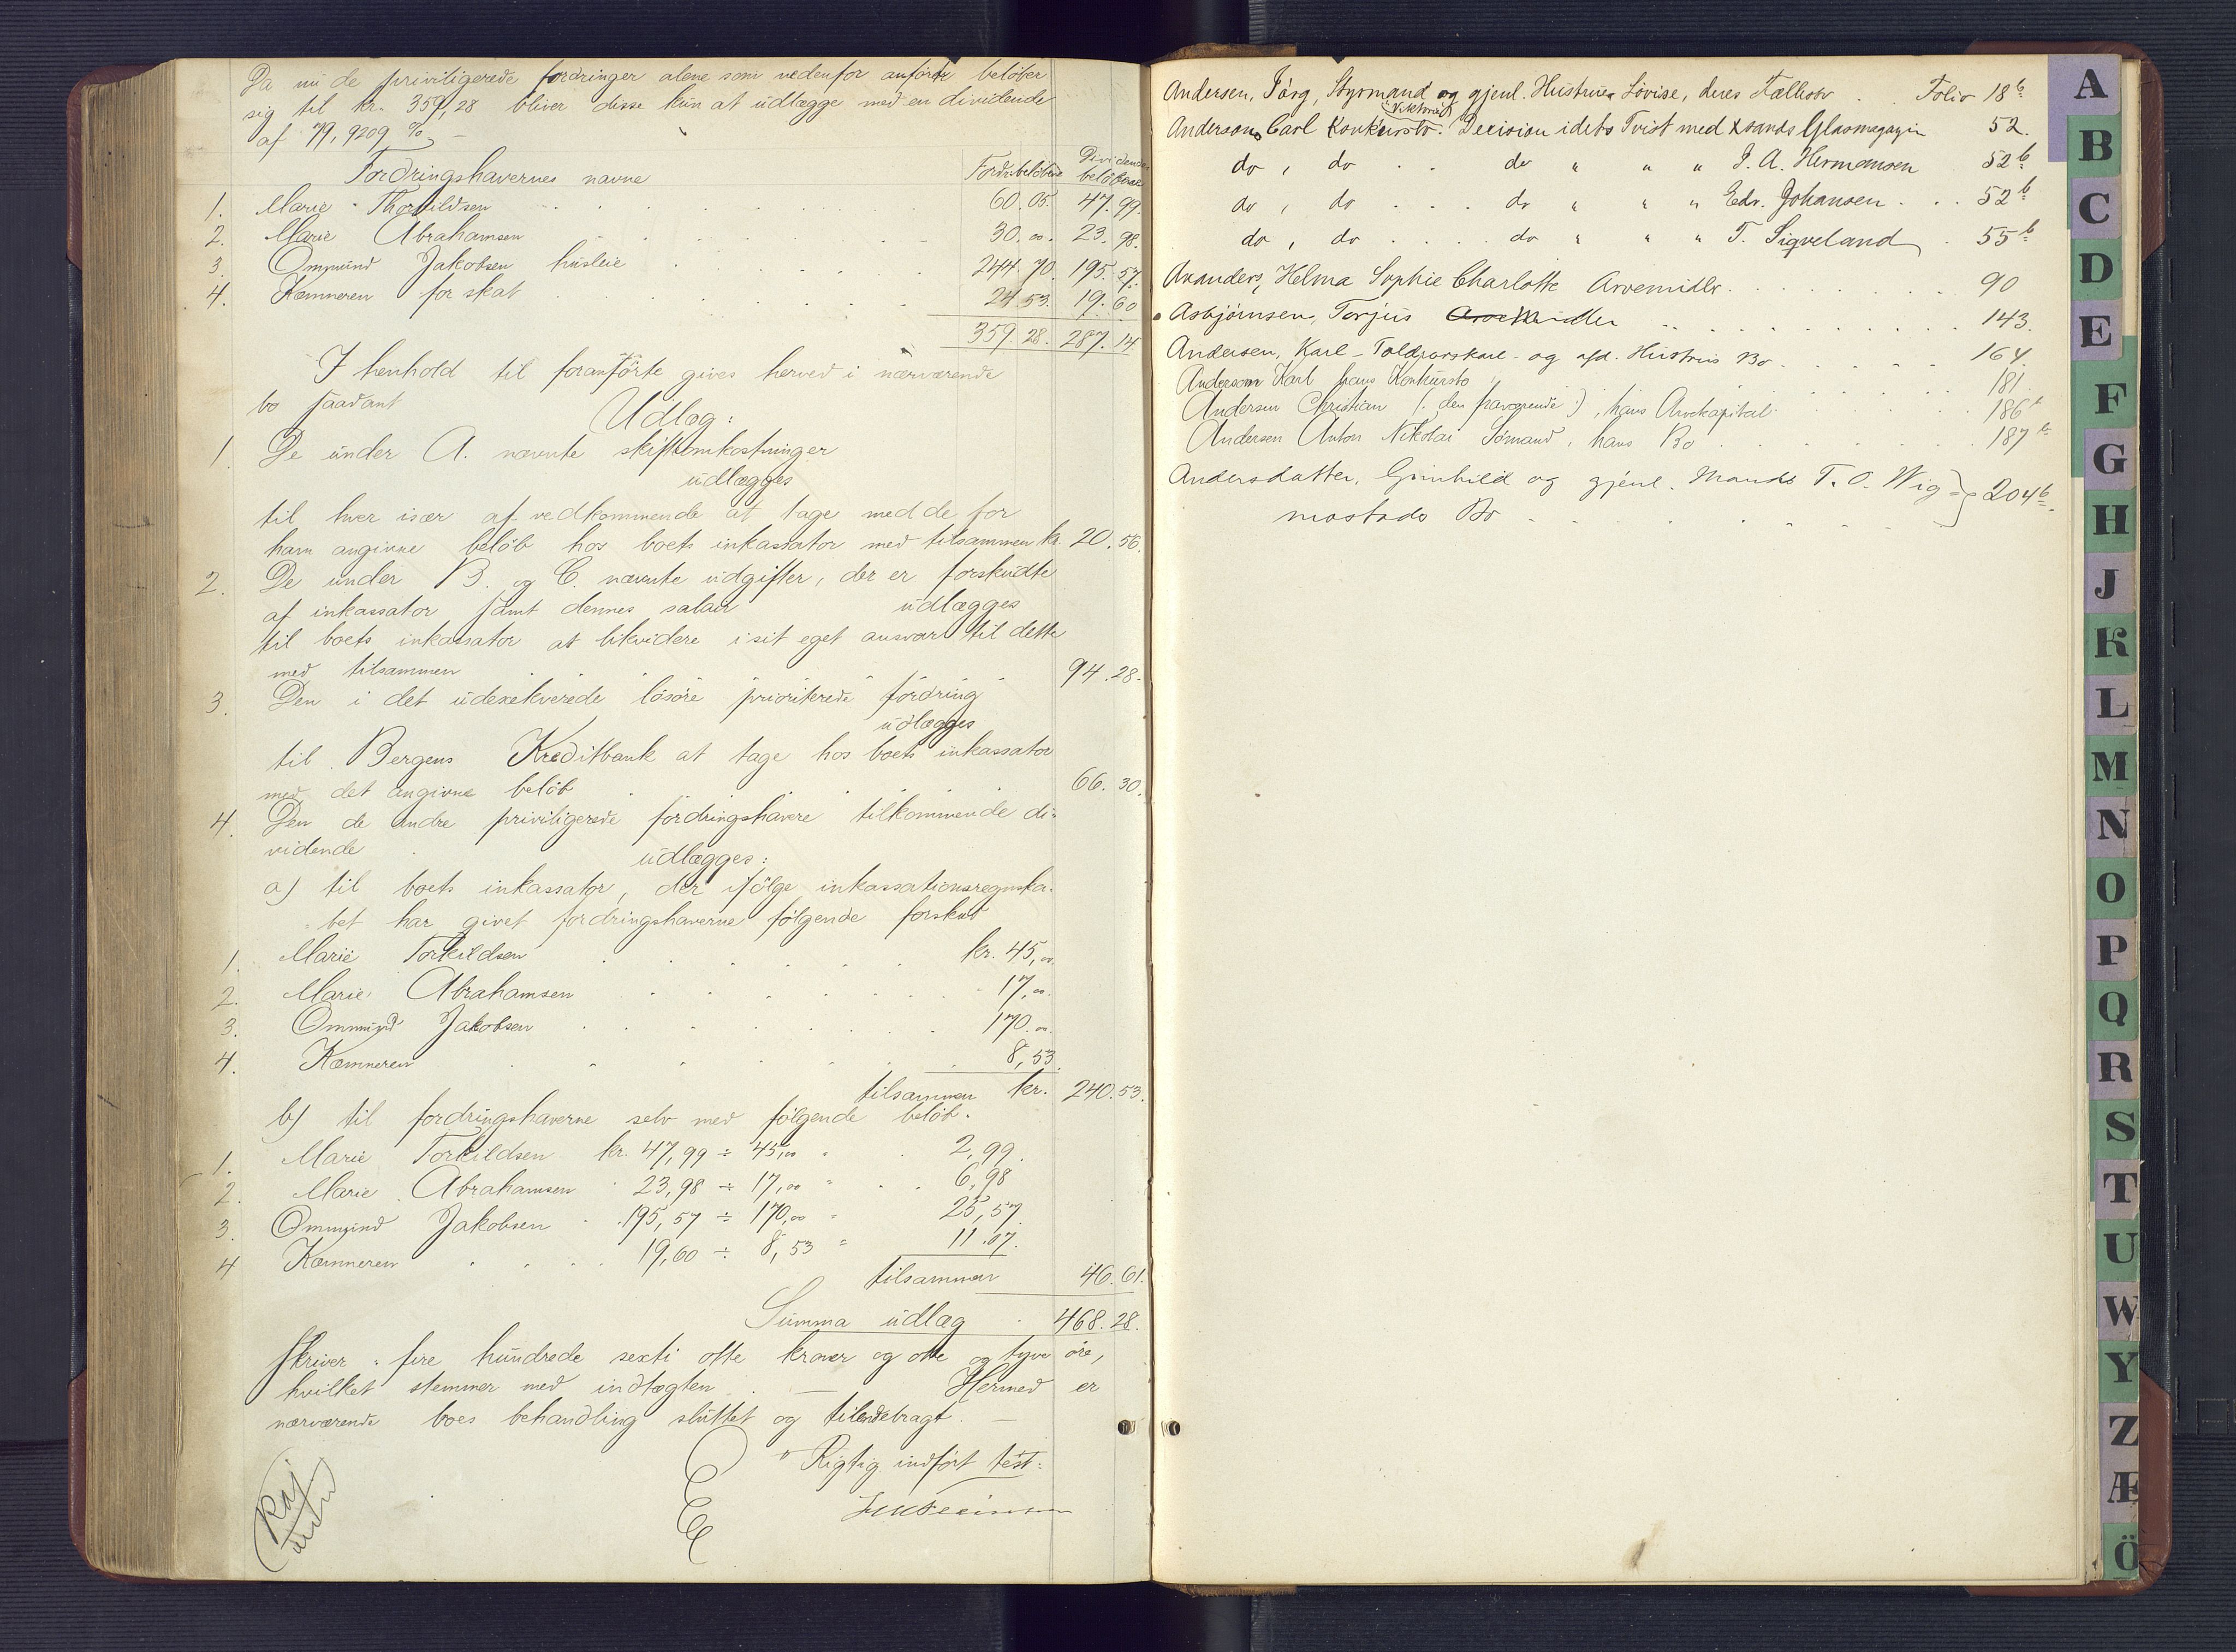 Da nu de priviligerede fordringer alene som nedenfor anført beløber
sig til kr. 359,28 bliver disse kun at udlægge med en dividende
af 79,9209 %
Fordringshavernes navne Fordr.beløbene Dividende beløbene
1. Marie Thorkildsen 60.05. 47.99.
2. Marie Abrahamsen 30.00. 23.98.
3. Ommund Jakobsen husleie 244.70. 195.57.
4. Kæmneren for skat 24.53. 19.60
359.28. 287.14
I henhold til foranførte gives herved i nærværende
bo saadant
Udlog:
1. De under A. nævnte skifteomkostninger
udlægges
til hver især af vedkommende at tage med de for
ham angivne beløb hos boets inkassator med tilsammen kr. 20.56.
2. De under B. og C. nævnte udgifter, der er forskudte
af inkassator samt dennes salær udlægges
til boets inkassator at likvidere i sit eget ansvar til dette
med tilsammen 94.28.
3. Den i det udexekverede løsøre prioriterede fordring
udlægges
til Bergens Kreditbank at tage hos boets inkassator
med det angivne beløb 66.30.
4. Den de andre priviligerede fordringshavere tilkommende di-
vidende udlægges:
a) til boets inkassator, der ifølge inkassationsregnska-
bet har givet fordringshaverne følgende forskud
1. Marie Torkildsen kr. 45,00
2. Marie Abrahamsen 17,00.
3. Ommund Jakobsen 170.00.
4. Kæmneren 8,53
tilsammen kr. 240.53.
b) til fordringshaverne selv med følgende beløb.
1. Marie Torkildsen kr. 47,99 ÷ 45,00 " 2,99.
2. Marie Abrahamsen 23,98 ÷ 17,00 " 6,98
3. Ommund Jakobsen 195,57 ÷ 170,00 " 25,57.
4 Kæmneren 19,60 ÷ 8,53 " 11.07.
tilsammen 46.61.
Summa udlæg 468.28.
skriver fire hundrede sexti otte kroner og otte og tyve øre,
hvilket stemmer med indtægten. — Hermed er
nærværende boes behandling sluttet og tilendebragt. —
Rigtig indført test:
Andersen, Jørg, Styrmand og gjenl. Hustrues Lovise, deres Fællesbo Folio 18b
Viktorius
Anderson, Carl Konkursbo. Decision i dets Tvist med Xsands Glasmagazin 52.
do, do do " " " J. A. Hermansen 52b
do, do do " " " Edv. Johansen 52b
do, do do " " " T. Sigveland 55b
Avanders, Helma Sophie Charlotte Arvemidler 90
Asbjørnsen, Torjus Arvemidler 143.
Andersen, Karl - Toldopsskarl - og afd. Hustrus Bo 164.
Anderson Karl hans Konkursbo 181.
Andersen Christian (: den fraværende :), hans Arvekapital 186b
Andersen Anton Nikolai Sømand, hans Bo 187b
Andersdatter, Gunhild og gjenl. Mands T. O. Wig= 204b.
mostads Bo
A
B
C
D
E
F
G
H
J
K
L
M
N
O
P
Q
R
S
T
U
W
Y
Z
Æ
Ö